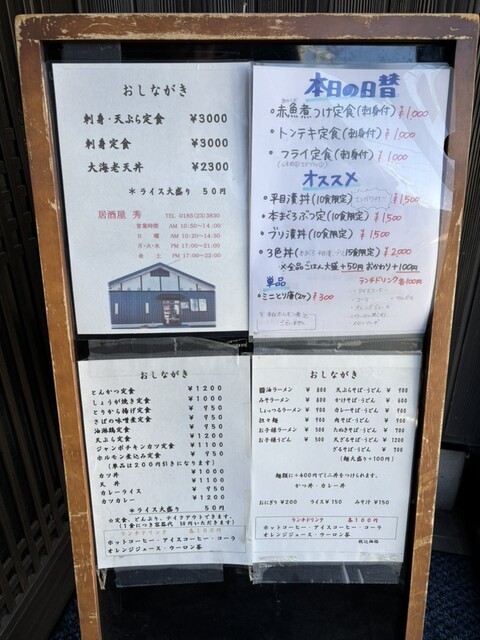 おしながき
刺身・天ぷら定食 ¥3000
刺身定食 ¥3000
大海老天丼 ¥2300
＊ライス大盛り 50円
居酒屋 秀 TEL 0185(23)3830
営業時間 AM 10:50~14:00
日 曜 AM 10:20~14:30
月・火・水 PM 17:00~21:00
金 土 PM 17:00~22:00
本日の日替
・赤魚煮つけ定食(刺身付) ¥1,000
・トンテキ定食(刺身付) ¥1,000
・フライ定食(刺身付) ¥1,000
オススメ
・平目漬丼(10食限定) ¥1,500
・本まぐろぶつ定(10食限定) ¥1,500
・ブリ漬丼(10食限定) ¥1,500
・3色丼 (15食限定) ¥2,000
×全品ごはん大盛+50円 おかわり+100円
単品
ランチドリンク各100円
・ミニとり唐(2ケ) ¥300
おしながき
とんかつ定食 ¥1200
しょうが焼き定食 ¥1000
とりから揚げ定食 ¥950
さばの味噌煮定食 ¥950
油淋鶏定食 ¥950
天ぷら定食 ¥1200
ジャンボチキンカツ定食 ¥1100
ホルモン煮込み定食 ¥950
(単品は200円引きになります)
カツ丼 ¥1000
天丼 ¥1100
カレーライス ¥950
カツカレー ¥1200
＊ライス大盛り 50円
☆定食、どんぶり、テイクアウトできます。
ランチドリンク 各100円
ホットコーヒー・アイスコーヒー・コーラ
オレンジジュース・ウーロン茶
おしながき
醤油ラーメン ¥800 天ぷらそば・うどん ¥900
みそラーメン ¥800 かけそば・うどん
しょっつるラーメン ¥900 カレーそば・うどん
担々麺 ¥900 肉そば・うどん
お子様ラーメン ¥500 たぬきそば・うどん
お子様うどん ¥500 天ざるそば・うどん
ざるそば・うどん
(麺大盛り+100円)
麺類に+400円でミニ丼をつけられます。
かつ丼・カレー丼
おにぎり ¥200 ライス ¥150 みそ汁 ¥150
ランチドリンク 各100円
ホットコーヒー・アイスコーヒー・コーラ
オレンジジュース・ウーロン茶
税込価格